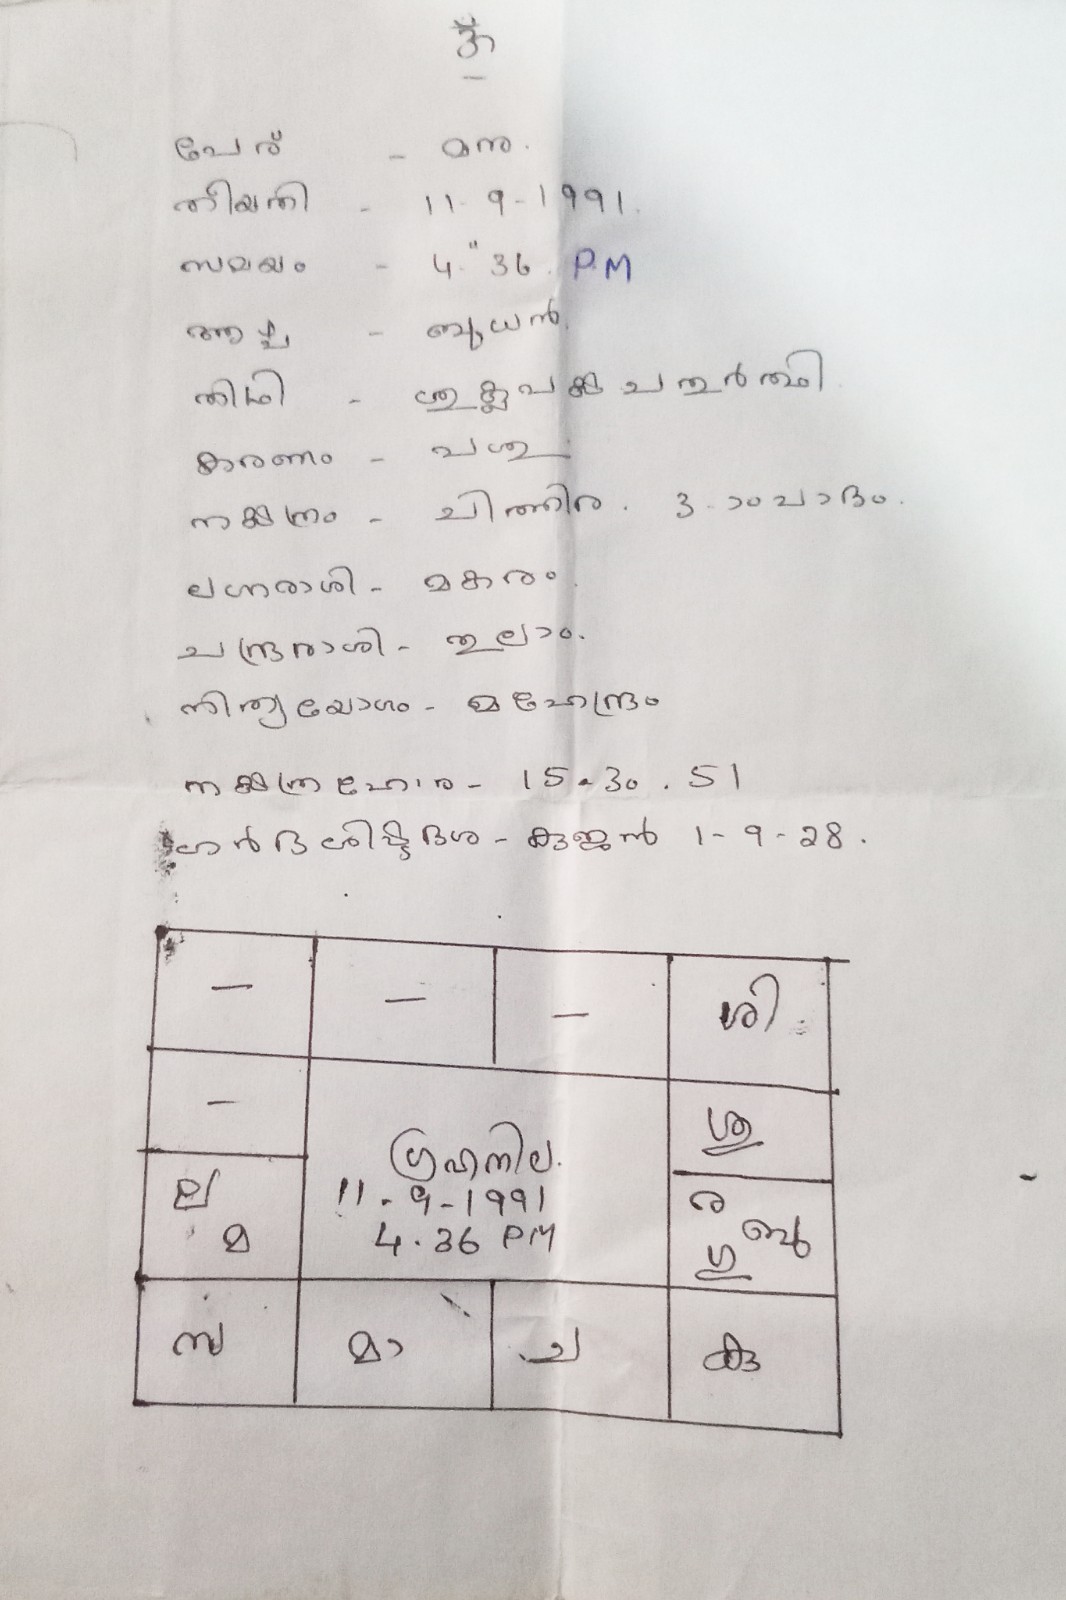 ॐ
പേര് - മനു.
തീയതി - 11-9-1991.
സമയം - 4."36. P.M
ആഴ്ച - ബുധൻ.
തിഥി - ശുക്ലപക്ഷ ചതുർത്ഥി.
കരണം - പശു.
നക്ഷത്രം - ചിത്തിര. 3-ാംപാദം.
ലഗ്നരാശി - മകരം.
ചന്ദ്രരാശി - തുലാം.
നിത്യയോഗം - മഹേന്ദ്രം
നക്ഷത്രഹോര - 15.30.51
ഗർഭശിഷ്ടദശ - കുജൻ 1-9-28.
- - - ശി
- ശു
ഗ്രഹനില.
11-9-1991
4.36 PM
ല
മ
ര
ബു
ഗു
സ മാ ച കു